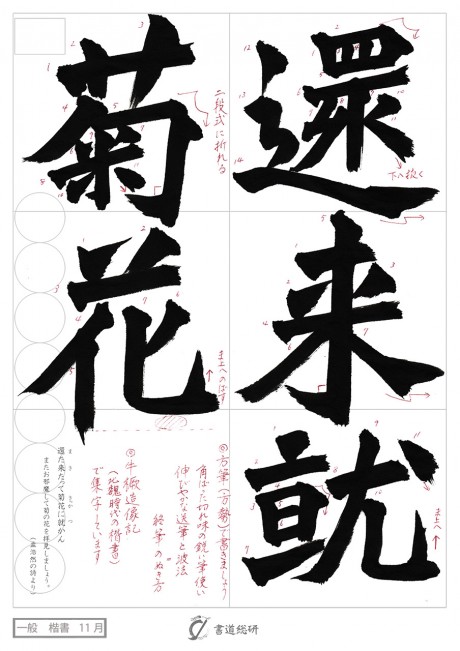 還来就
菊花
二段式に折れる
下へ抜く
真上へのばす
真上へ
◎方筆(方勢)で書きましょう
角ばった切れ味の鋭い筆使い
伸びやかな送筆と波法
終筆のぬき方
◎牛橛造像記
(北魏時代の楷書)
で集字しています。
還た来たって菊花に就かん
またお邪魔して菊の花を拝見しましょう。
(孟浩然の詩より)
一般 楷書 11月
書道総研